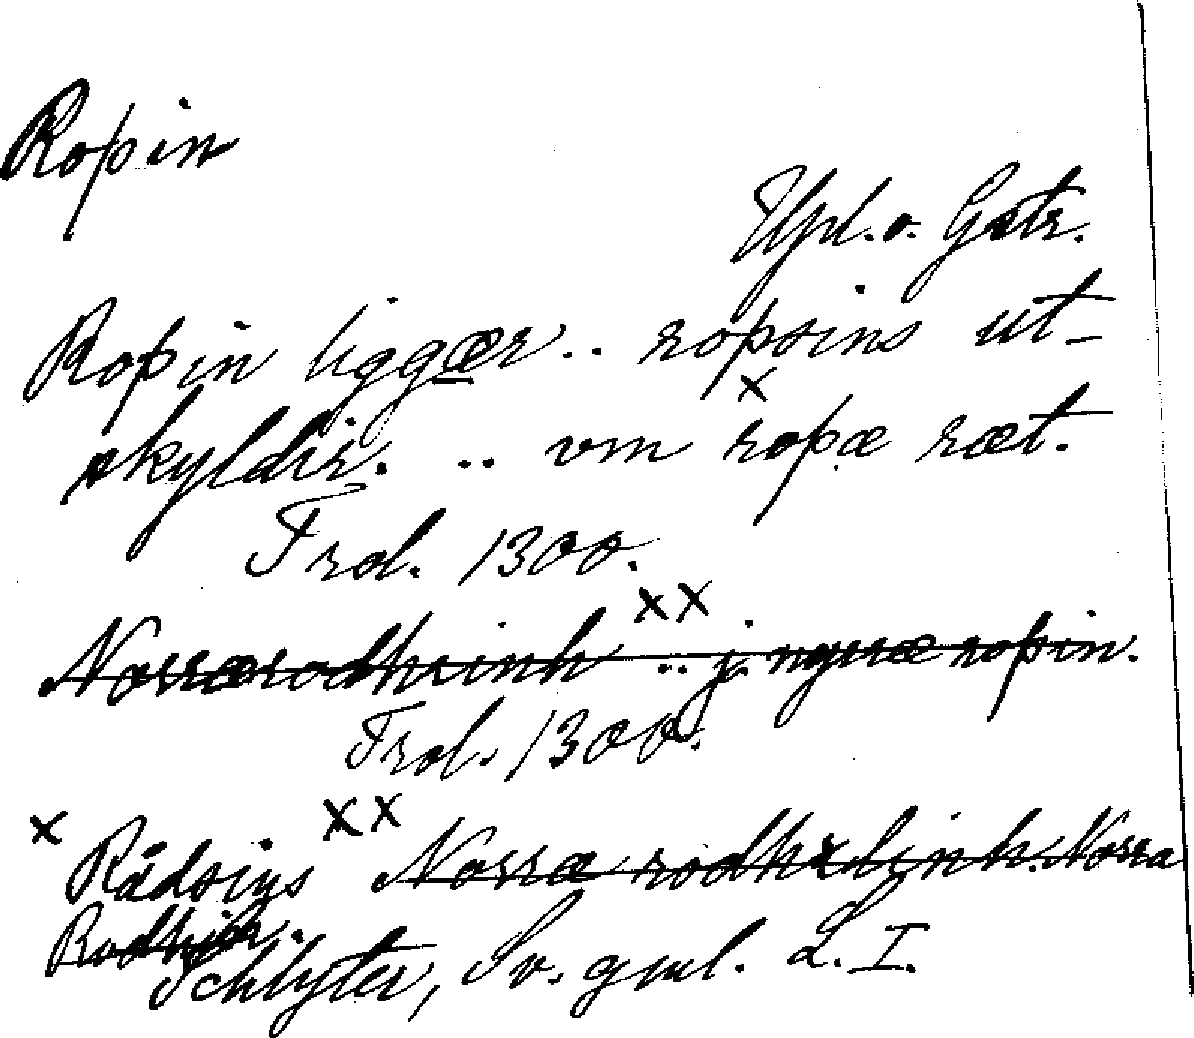 Roþin
Upl. o. Gstr.
Roþin liggær .. roþsins ut-
skyldir. .. vm roþæ ræt.
x
Frdl. 1300.
xx
Norræ rodhsinh .. j. nyrræ roþin.
Frdl. 1300.
x Rådsins xx Norræ rodhslinh. Norra
Schlyter, Sv. gml. L. I.